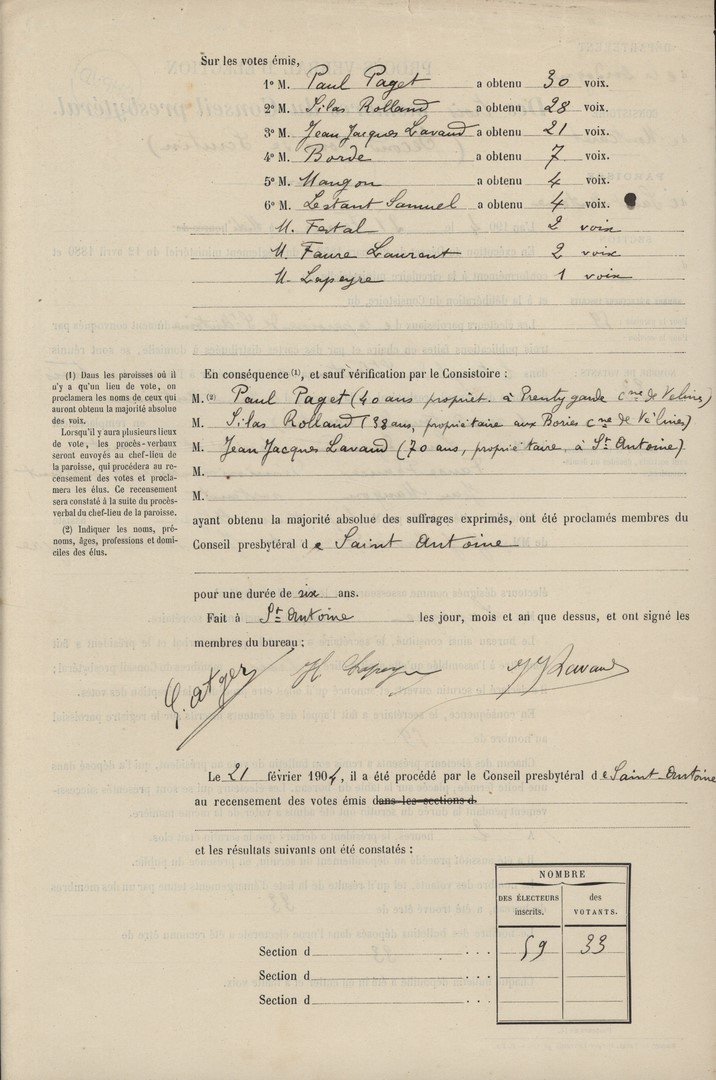 Sur les votes émis,
1º M. Paul Paget a obtenu 30 voix.
2º M. Silas Rolland a obtenu 28 voix.
3º M. Jean Jacques Lavaud a obtenu 21 voix.
4º M. Borde a obtenu 7 voix.
5º M. Mangon a obtenu 4 voix.
6º M. Lestant Samuel a obtenu 4 voix.
M. Festal 2 voix
M. Faure Laurent 2 voix
M. Lapeyre 1 voix
(1) Dans les paroisses où il
n'y a qu'un lieu de vote, on
proclamera les noms de ceux qui
auront obtenu la majorité absolue
des voix.
Lorsqu'il y aura plusieurs lieux
de vote, les procès-verbaux
seront envoyés au chef-lieu de
la paroisse, qui procédera au re-
censement des votes et procla-
mera les élus. Ce recensement
sera constaté à la suite du procès-
verbal du chef-lieu de la paroisse.
(2) Indiquer les noms, pré-
noms, âges, professions et domi-
ciles des élus.
En conséquence (1), et sauf vérification par le Consistoire :
M. (2) Paul Paget (40 ans propriet. à Prentygarde cne de Velines)
M. Silas Rolland (38 ans, propriétaire aux Bories cne de Vélines)
M. Jean Jacques Lavaud (70 ans, propriétaire à St Antoine).
M.
M.
ayant obtenu la majorité absolue des suffrages exprimés, ont été proclamés membres du
Conseil presbytéral de Saint Antoine
pour une durée de six ans.
Fait à St Antoine les jour, mois et an que dessus, et ont signé les
membres du bureau :
E. Atger H Lapeyre JJ Lavaud
Le 21 février 1904, il a été procédé par le Conseil presbytéral de Saint-Antoine
au recensement des votes émis dans les sections d
et les résultats suivants ont été constatés :
NOMBRE
DES ÉLECTEURS inscrits. des VOTANTS.
Section d . . . 59 33
Section d . . .
Section d . . .